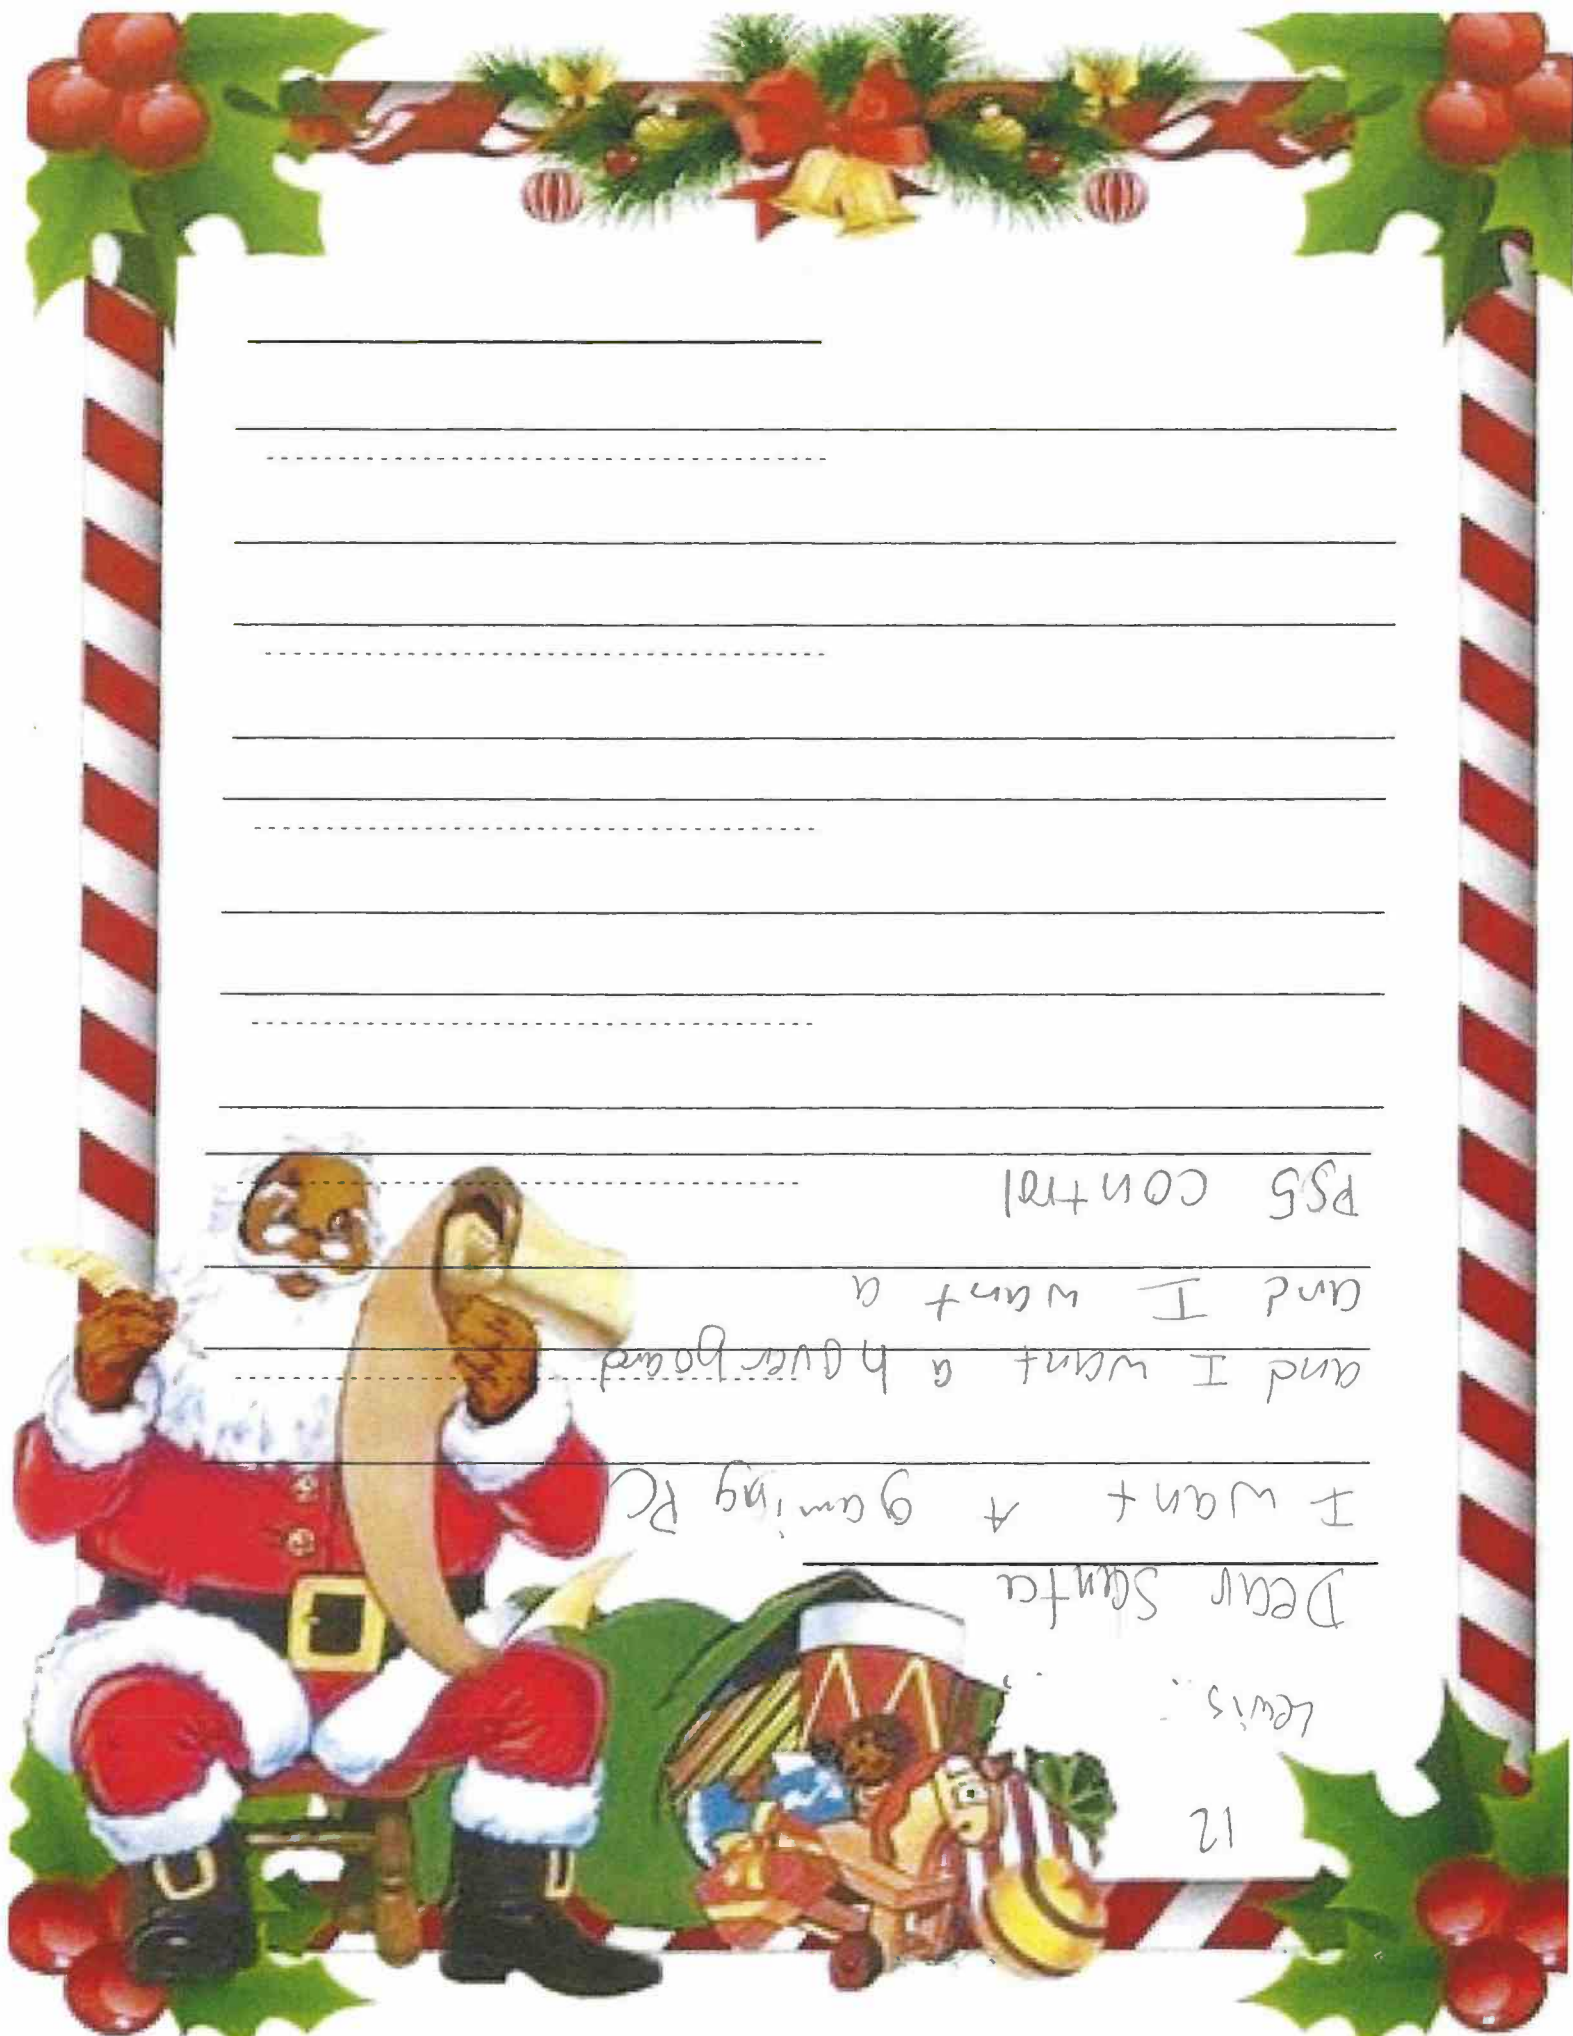 12
Lewis.
Dear Santa
I want A gaming PC
and I want a hoverboard
and I want a
PS5 control